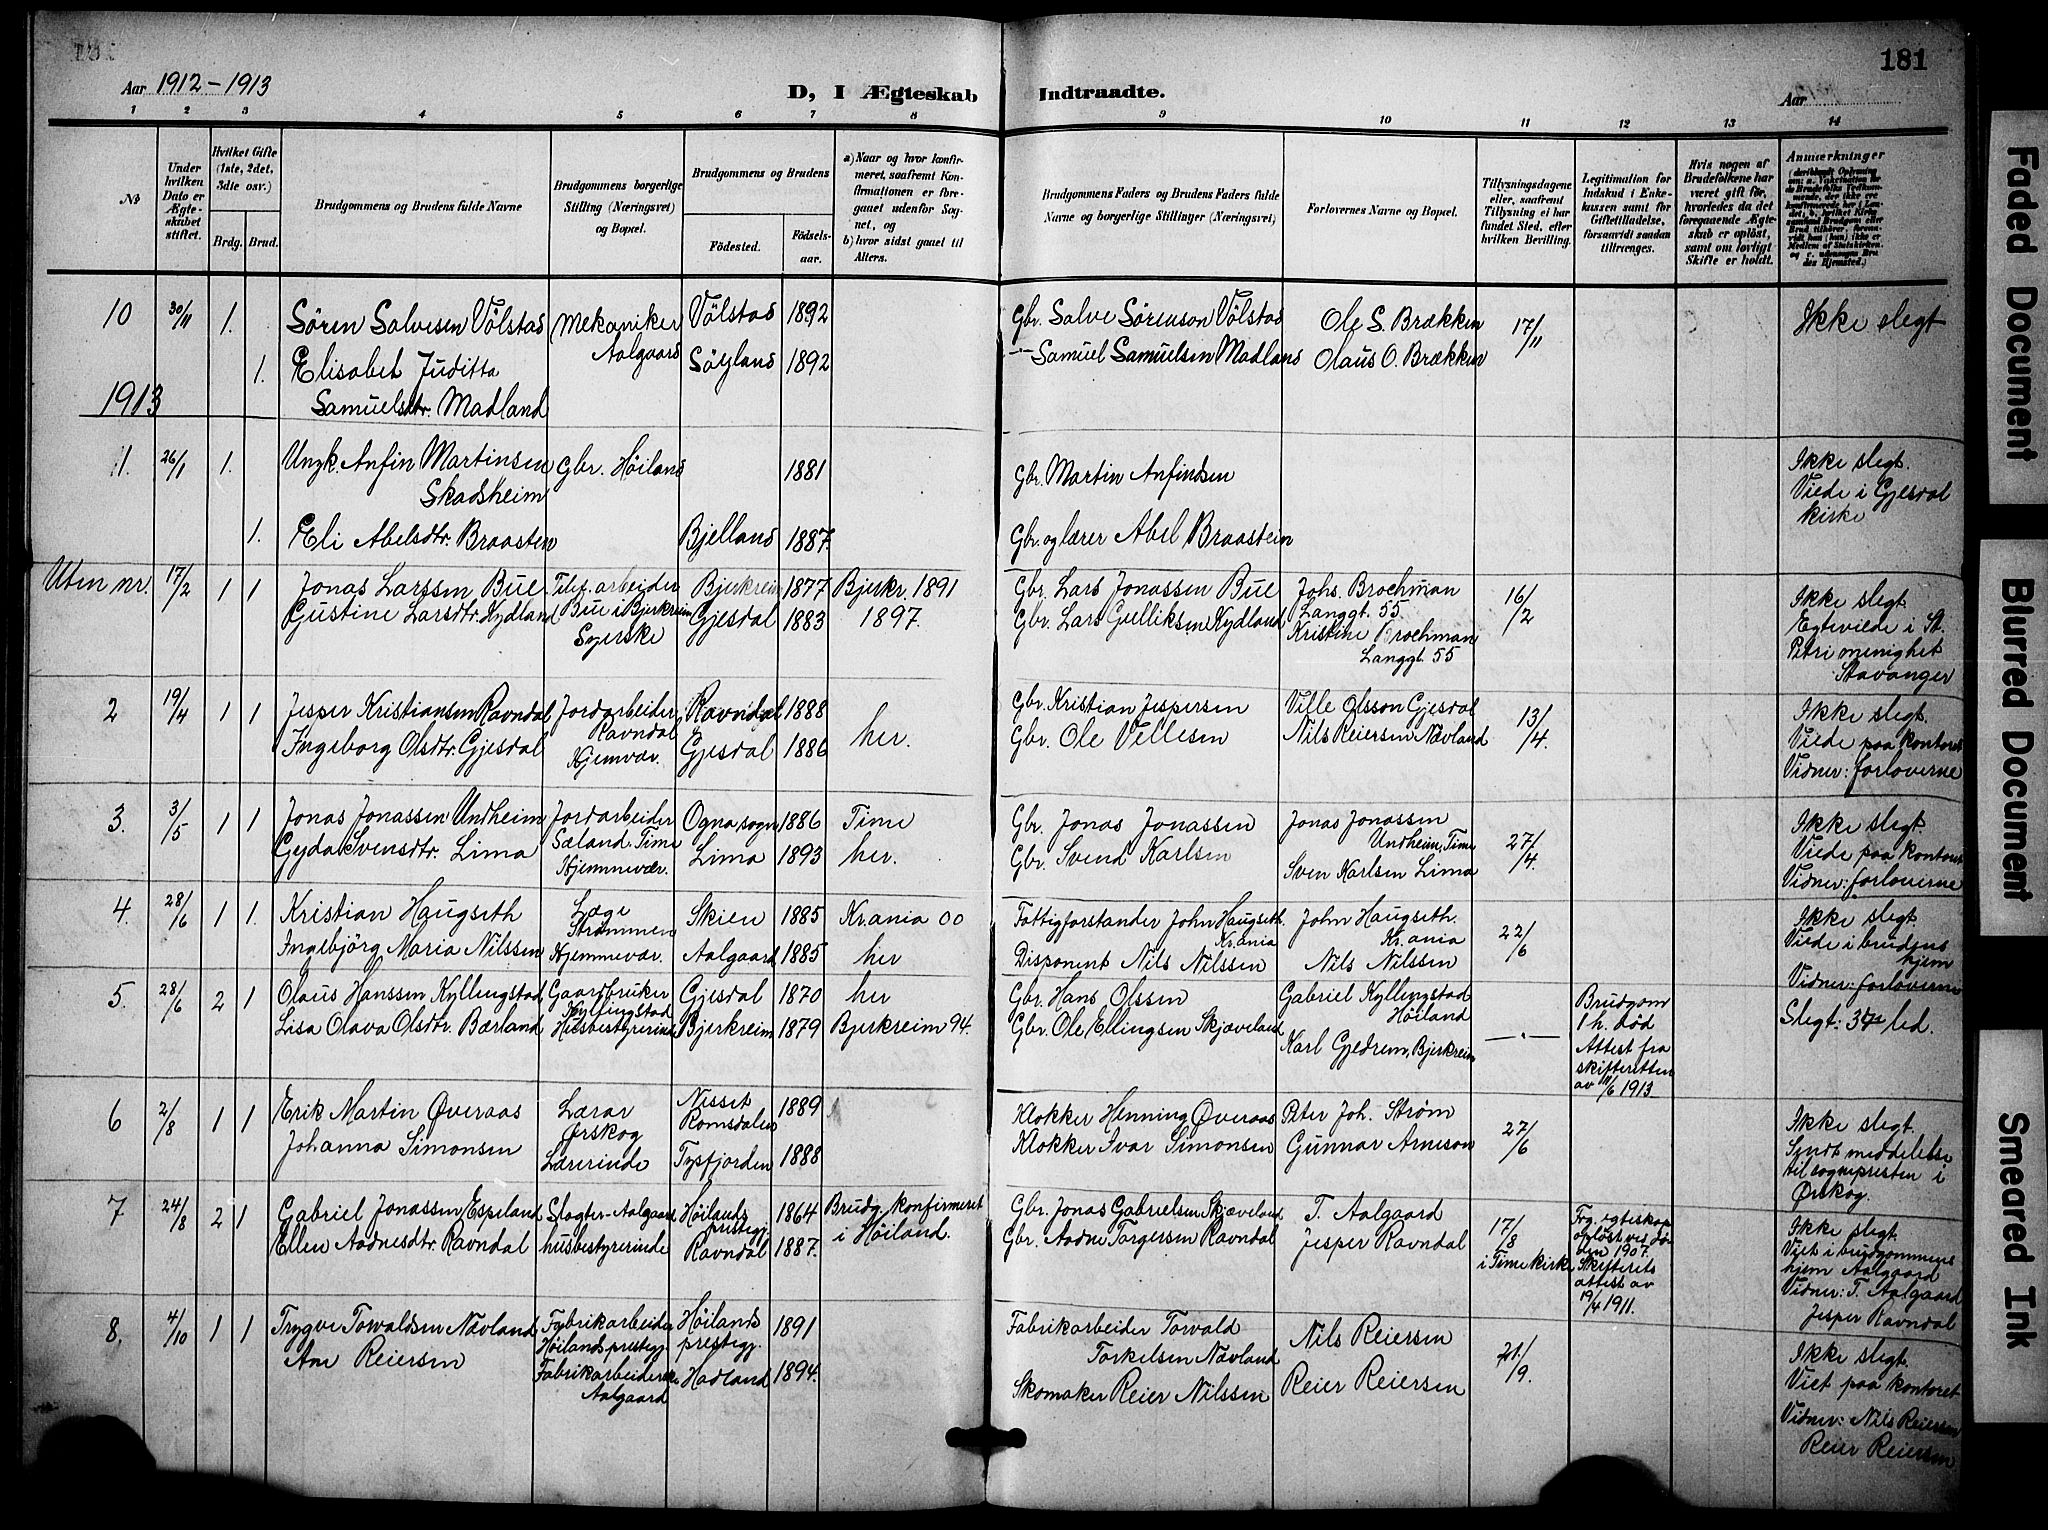 181
Aar 1912-1913
D, I Ægteskab Indtraadte.
Aar
1 2 3 4 5 6 7 8 9 10 11 12 13 14
No
Under hvilken Dato er Ægteskabet stiftet.
Hvilket Gifte (1ste, 2det, 3die osv.)
Brdg. Brud.
Brudgommens og Brudens fulde Navne
Brudgommens borgerlige Stilling (Næringsvei) og Bopæl.
Brudgommens og Brudens
Födested.
Födselsaar.
a) Naar og hvor konfirmeret, saafremt Konfirmationen er foregaaet udenfor Sognet, og
b) hvor sidst gaaet til Alters.
Brudgommens Faders og Brudens Faders fulde Navne og borgerlige Stillinger (Næringsvei)
Forlovernes Navne og Bopæl.
Tillysningsdagene eller, saafremt Tillysning ei har fundet Sted, efter hvilken Bevilling.
Legitimation for Indskud i Enkekassen samt for Giftetilladelse, forsaavidt saadan tiltrænges.
Hvis nogen af Brudefolkene har været gift för, hvorledes da det foregaaende Ægteskab er oplöst, samt om lovligt Skifte er holdt.
Anmerkninger
10 30/11 1. Sören Salvesen Völstad Mekaniker Völstad 1892 Gbr. Salve Sørenson Völstad Ole S. Brækken 17/11 Ikke slegt
Aalgaard
1. Elisabet Juditta Söyland 1892 -"- Samuel Samuelsen Madland Olaus O. Brækken
Samuelsdtr. Madland
1913
1. 26/1 1. Ungk. Anfin Martinsen Gbr. Höiland 1881 Gbr. Martin Anfindsen Ikke slegt.
Skadsheim Viede i Gjesdal
kirke
1. Eli Abelsdtr. Braasten Bjelland 1887. Gbr. og lærer Abel Braastein
Uten nr. 17/2 1 1 Jonas Larssen Bue Telef. arbeider Bjerkreim 1877 Bjerkr. 1891 Gbr. Lars Jonassen Bue Johs. Brochman 16/2 Ikke slegt.
Langgt. 55
Gustine Larsdtr. Kydland Bue i Bjerkreim Gjesdal 1883 1897. Gbr. Lars Gulliksen Kydland Kristine Brochman Egteviede i St.
Syerske Langgt. 55 Petri menighet
Stavanger
2 19/4 1 1 Jesper Kristiansen Ravndal Jordarbeider Ravndal 1888 her. Gbr. Kristian Jespersen Ville Olsson Gjesdal 13/4. Ikke slegt.
Ravndal
Ingeborg Olsdtr. Gjesdal Hjemvær. Gjesdal 1886 Gbr. Ole Villesen Nils Reiersen Nævland Viede paa kontoret
Vidner: forloverne
3. 3/5 1 1 Jonas Jonassen Undheim Jordarbeider Ogna sogn 1886 Time Gbr. Jonas Jonassen Jonas Jonassen 27/4. Ikke slegt.
Sæland, Time Undheim, Time
Gyda Svensdtr. Lima Hjemmevær. Lima 1893 her. Gbr. Svend Karlsen Sven Karlsen Lima Viede paa kontoret
Vidner: forloverne
4. 28/6 1 1. Kristian Haugseth Læge Skien 1885 Kr.ania 00 Fattigforstander John Haugseth. John Haugseth. 22/6 Ikke slegt.
Strømmen Kr.ania Kr.ania
Ingebjörg Maria Nilssen Hjemmevær. Aalgaard 1885 her Disponent Nils Nilssen Nils Nilssen Viede i brudens
hjem
Vidner: forloverne
5. 28/6 2 1 Olaus Hanssen Kyllingstad Gaardbruker Gjesdal 1870 her Gbr. Hans Olssen Gabriel Kyllingstad -"- Brudgom Slegt: 3die led.
Kyllingstad Höiland 1 h. død
Lisa Olava Olsdtr. Bærland Husbestyrerinde Bjerkreim 1879 Bjerkreim 94. Gbr. Ole Ellingsen Skjæveland Karl Gjedrem, Bjerkreim Attest fra
skifteretten
av 11/6 1913
6 2/8 1 1 Erik Martin Øveraas Lærar Nisset 1889 Klokker Henning Øveraas Peter Joh. Strøm 27/6 Ikke slegt.
Ørskog Romsdalen
Johanna Simonsen Lærerinde Tysfjorden 1888 Klokker Ivar Simonsen Gunnar Arneson Sendt meddelelse
til sognepresten i
Ørskog.
7 24/8 2 1 Gabriel Jonassen Espeland Slagter-Aalgaard Höilands 1864 Brudg. konfirmeret Gbr. Jonas Gabrielsen Skjæveland T. Aalgaard 17/8 Frg. egteskap Ikke slegt.
prestegj. i Höiland. opløst ved dø-
Ellen Aadnesdtr. Ravndal husbestyrerinde Ravndal 1887. Gbr. Aadne Torgersen Ravndal Jesper Ravndal i Time kirke den 1907. Viet i brudgommens
Skifterets hjem Aalgaard
attest av Vidner: T. Aalgaard
19/4 1911. Jesper Ravndal
8. 4/10 1 1 Trygve Torvaldsen Nævland Fabrikarbeider Höilands 1891 Fabrikarbeider Torvald Nils Reiersen 21/9. Ikke slegt.
Höilands prestegj. prestegj. Torkelsen Nævland Viet paa kontoret
Ane Reiersen Fabrikarbeiderske Hadland 1894. Skomaker Reier Nilssen Reier Reiersen Vidner: Nils Reiersen
Aalgaard Reier Reiersen
Faded Document
Blurred Document
Smeared Ink